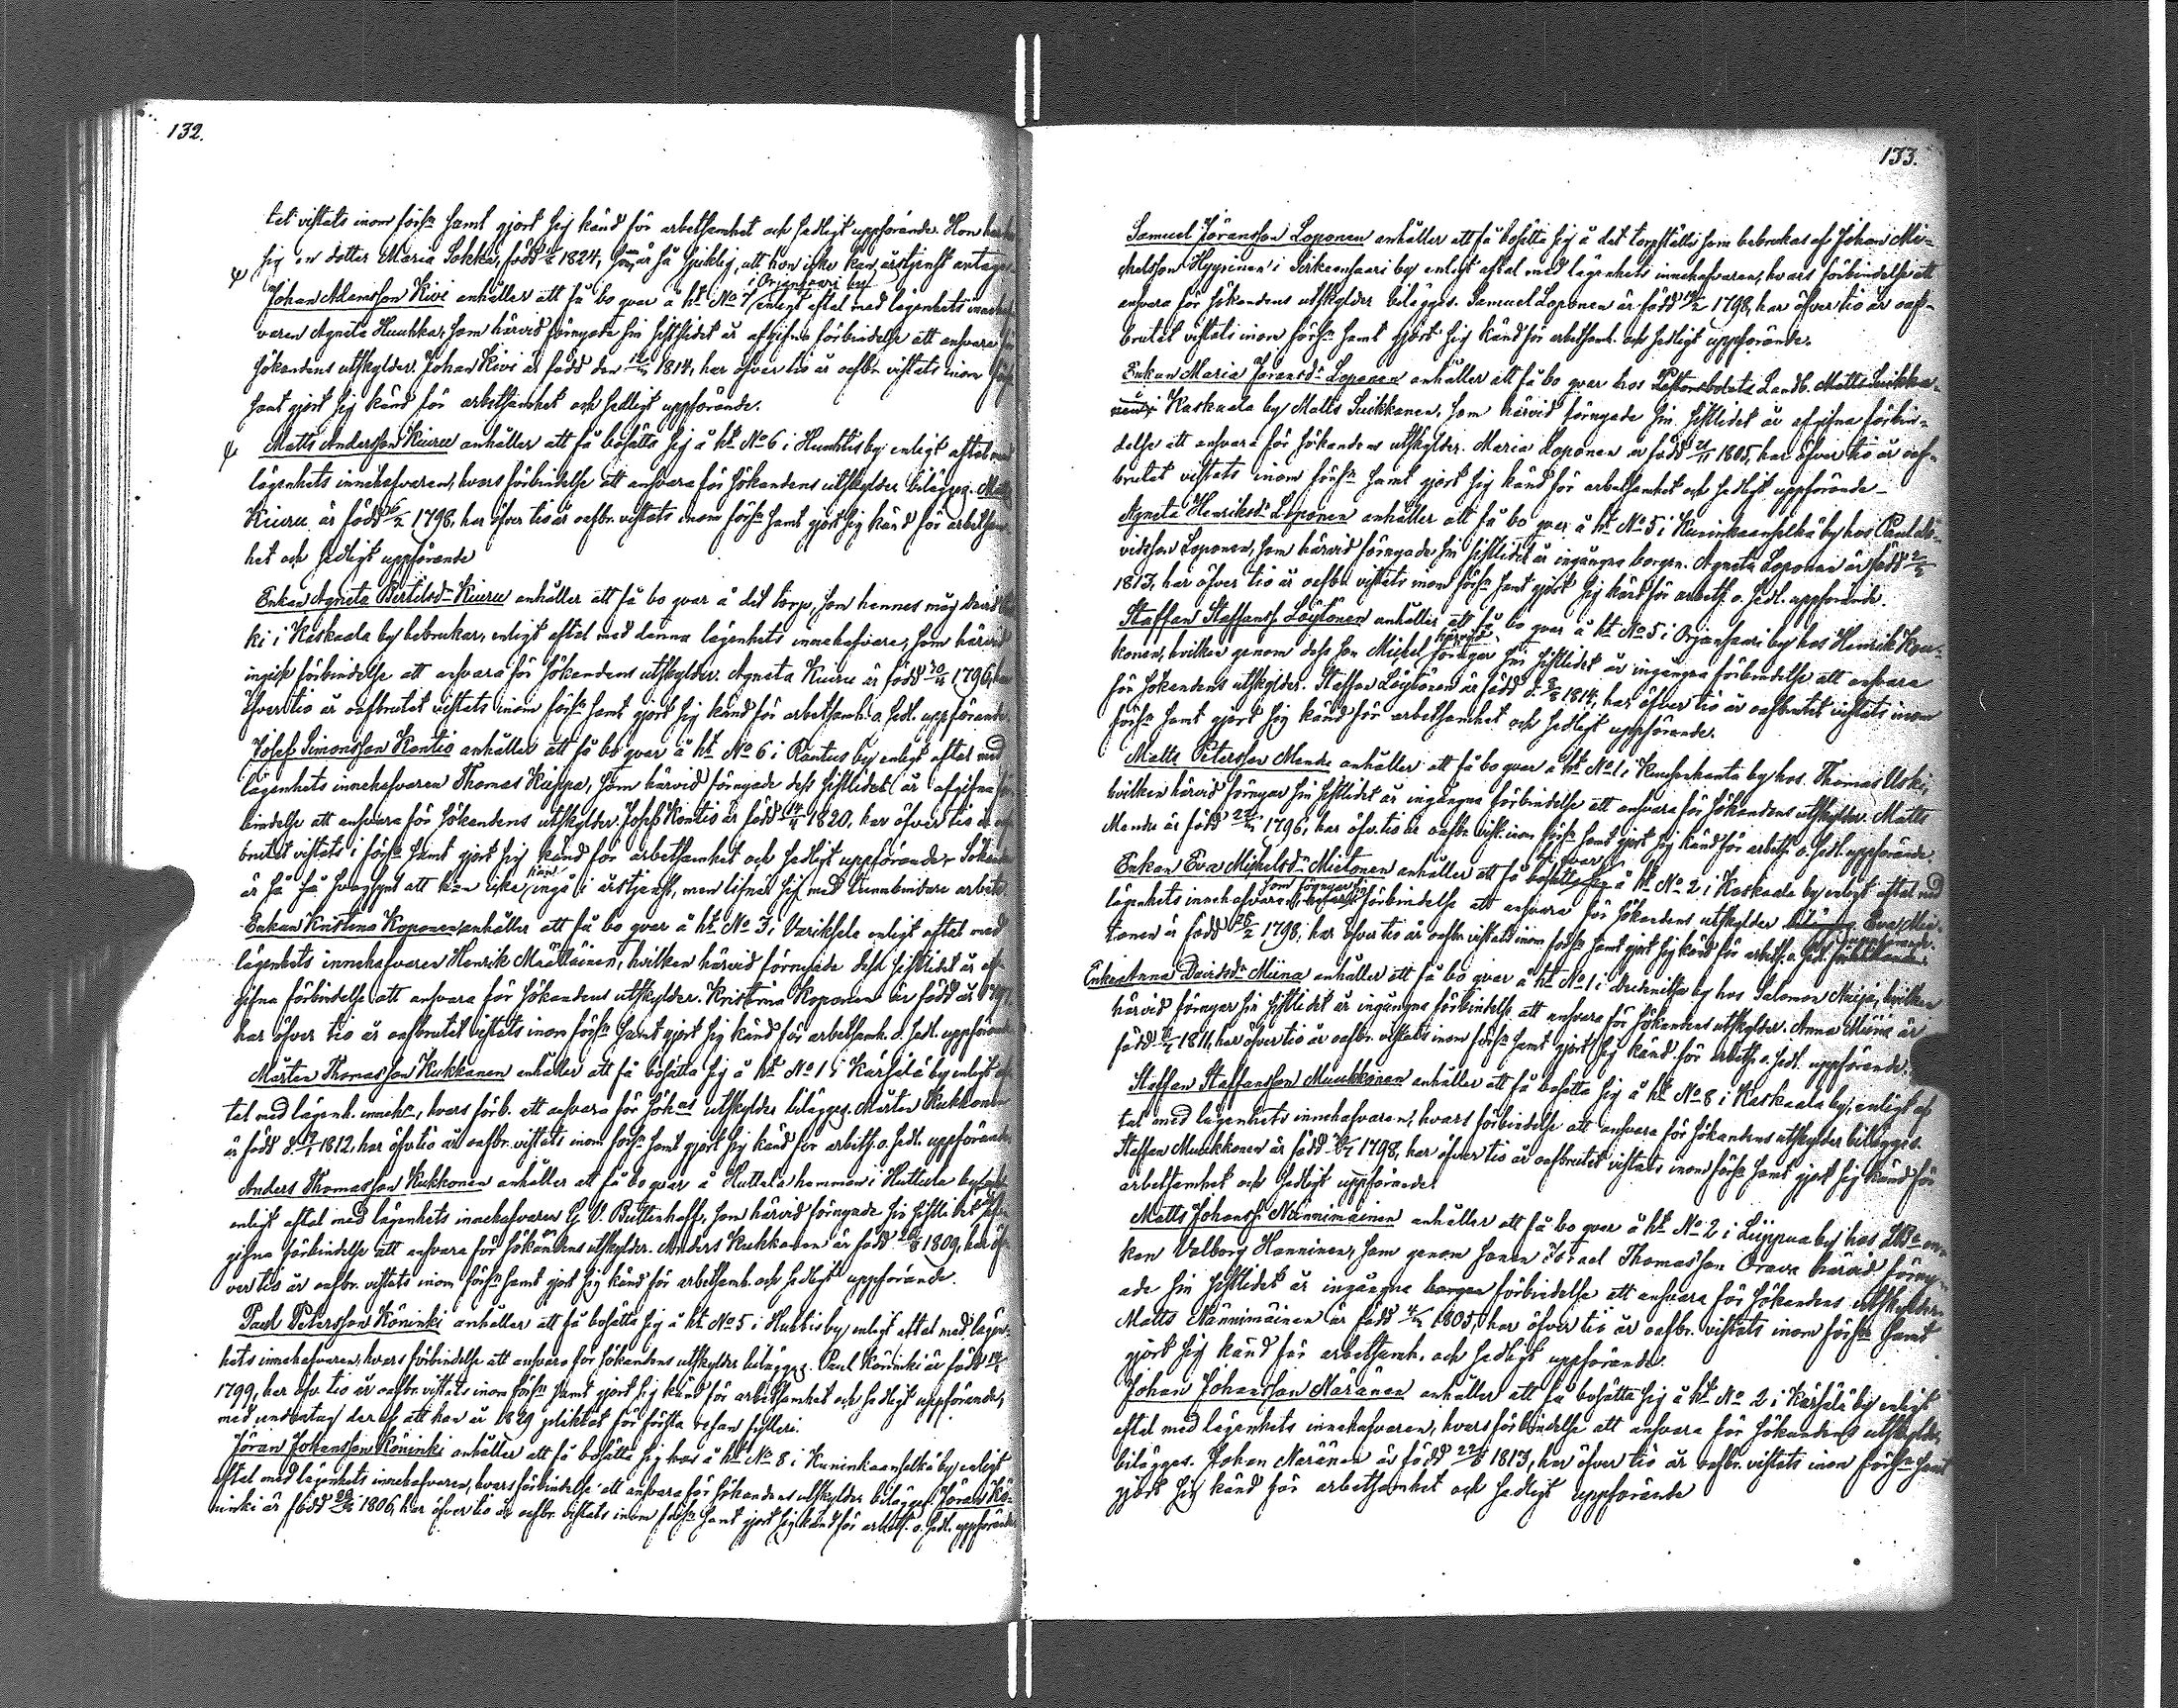 132.
tet vistats inom förs:n samt gjort sig känd för arbetsamhet och sedligt uppförande. Hon har hos
sig en dotter Maria Sokka, född 1824, som är så sjuklig, att hon icke kan i årstjenst antagas
Johan Adamsson Kivi anhåller att få bo qvar å ht. No 7 i Orjansaari by enligt aftal med lägenhets innehaf-
varen Agneta Huuhka, som härvid förnyade sin sistlidet år afgifna förbindelse att ansvara för
sökandens utskylder. Johan Kivi är född den 1814, har öfver tio år oafbr. vistats inom förs:n
samt gjort sig känd för arbetsamhet och sedligt uppförande.
Matts Andersson Kuiru anhåller att få bosätta sig å ht. No 6 i Huuhtis by enligt aftal med
lägenhets innehafvaren, hvars förbindelse att ansvara för sökandens utskylder bilägges. Matts
Kuiru är född 1798, har öfver tio år oafbr. vistats inom förs:n samt gjort sig känd för arbetsam-
het och sedligt uppförande
Enkan Agneta Bertilsd:r Kuiru anhåller att få bo qvar å det torp, som hennes måg David
ki i Kaskaala by bebrukar, enligt aftal med denna lägenhets innehafvare, som härvid
ingick förbindelse att ansvara för sökandens utskylder. Agneta Kuiru är född 1796, har
öfver tio år oafbrutet vistats inom förs:n samt gjort sig känd för arbetsamh. o. sedl. uppförande.
Josef Simonsson Kontio anhåller att få bo qvar å ht. No 6 i Rantus by enligt aftal med
lägenhets innehafvaren Thomas Kuppa, som härvid förnyade dess sistlidet år afgifna för-
bindelse att ansvara för sökandens utskylder. Josef Kontio är född 14/4 1820, har öfver tio år oaf-
brutet vistats i förs:n samt gjort sig känd för arbetsamhet och sedligt uppförande. Sökanden
är så svagsynt att han icke kan ingå i årstjenst, men lifnär sig med tunnbindare arbete
Enkan Kristina Koponen anhåller att få bo qvar å ht. No 3 i Variksela enligt aftal med
lägenhets innehafvaren Henrik Määttäinen, hvilken härvid förnyade dess sistlidet år af-
gifna förbindelse att ansvara för sökandens utskylder. Kristina Koponen är född år
har öfver tio år oafbrutet vistats inom förs:n samt gjort sig känd för arbetsamh. o. sedl. uppförande
Mårten Thomasson Kukkonen anhåller att få bosätta sig å ht. No 1 i Kärsälä by enligt af-
tal med lägenh. inneh:n, hvars förb. att ansvara för sök:as utskylder bilägges. Mårten Kukkonen
är född d. 1812, har öfv. tio år oafbr. vistats inom förs:n samt gjort sig känd för arbets. o. sedl. uppförande.
Anders Thomasson Kukkonen anhåller att få bo qvar å Huttula hemman i Huttula by
enligt aftal med lägenhets innehafvaren G. V. Buttenhoff, som härvid förnyade sin sistlidet år af-
gifna förbindelse att ansvara för sökandens utskylder. Anders Kukkonen är född 1809, har öf-
ver tio år oafbr. vistats inom förs:n samt gjort sig känd för arbetsamh. och sedligt uppförande.
Paul Petersson Köninki anhåller att få bosätta sig å ht. No 5 i Huhtis by enligt aftal med lägen-
hets innehafvaren, hvars förbindelse att ansvara för sökandens utskylder bilägges. Paul Köninki är född
1799, har öfv. tio år oafbr. vistats inom förs:n samt gjort sig känd för arbetsamhet och sedligt uppförande,
med undantag deraf att han år 1829 pliktat för första resan fylleri.
Jöran Johansson Köninki anhåller att få bosätta sig hos å ht. No 8 i Kuninkaanselkä by enligt
aftal med lägenhets innehafvaren, hvars förbindelse att ansvara för sökandens utskylder bilägges. Jöran Kö-
ninki är född 1806, har öfver tio år oafbr. vistats inom förs:n samt gjort sig känd för arbets. o. sedl. uppförande.
133.
Samuel Jöransson Loponen anhåller att få bosätta sig å det torpställe som bebrukas af Johan Mi-
chelsson Hyyrinen i Sirkeensaari by enligt aftal med lägenhets innehafvaren, hvars förbindelse att
ansvara för sökandens utskylder bilägges. Samuel Loponen är född 1798, har öfver tio år oaf-
brutet vistats inom förs:n samt gjort sig känd för arbetsamh. och sedligt uppförande.
Enkan Maria Jöransd:r Loponen anhåller att få bo qvar hos Landb. Matts Suikka-
nen i Kaskaala by Matts Suikkanen, som härvid förnyade sin sistlidet år afgifna förbin-
delse att ansvara för sökandens utskylder. Maria Loponen är född 21/11 1805, har öfver tio år oaf-
brutet vistats inom förs:n samt gjort sig känd för arbetsamhet och sedligt uppförande.
Agneta Henriksd:r Loponen anhåller att få bo qvar å ht. No 5 i Kuninkaanselkä by hos Paul Da-
vidsson Loponen, som härvid förnyade sin sistlidet år ingångna borgen. Agneta Loponen är född
1813, har öfver tio år oafbr. vistats inom förs:n samt gjort sig känd för arbets. o. sedl. uppförande.
Staffan Staffanss. Löytönen anhåller att få bo qvar å ht. No 5 i Orjansaari by hos Henrik
konen, hvilken genom dess son Michel härvid förnyar sin sistlidet år ingångna förbindelse att ansvara
för sökandens utskylder. Staffan Löytönen är född d. 1814, har öfver tio år oafbrutet vistats inom
förs:n samt gjort sig känd för arbetsamhet och sedligt uppförande.
Matts Petersson Mende anhåller att få bo qvar å ht. No 1 i by hos Thomas Uski,
hvilken härvid förnyar sin sistlidet år ingångna förbindelse att ansvara för sökandens utskylder. Matts
Mende är född 1796, har öfv. tio år oafbr. vist. inom förs:n samt gjort sig känd för arbets. o. sedl. uppförande.
Enkan Eva Michelsd:r Mietonen anhåller att få bo qvar bosätta sig å ht. No 2 i Kaskaala by enligt aftal med
lägenhets innehafvaren, som förnyar sin hvars förbindelse att ansvara för sökandens utskylder bilägges Eva Mie-
tonen är född 1798, har öfver tio år oafbr. vistats inom förs:n samt gjort sig känd för arbets. o. sedl. uppförande.
Enkan Anna Davidsd:r Miina anhåller att få bo qvar å ht. No 1 i by hos Salomon Maija, hvilken
härvid förnyar sin sistlidet år ingångna förbindelse att ansvara för sökandens utskylder. Anna Miina är
född 1811, har öfver tio år oafbr. vistats inom förs:n samt gjort sig känd för arbets. o. sedl. uppförande.
Staffan Staffansson Muukkonen anhåller att få bosätta sig å ht. No 8 i Kaskaala by, enligt af-
tal med lägenhets innehafvaren, hvars förbindelse att ansvara för sökandens utskylder bilägges.
Staffan Muukkonen är född 1798, har öfver tio år oafbrutet vistats inom förs:n samt gjort sig känd för
arbetsamhet och sedligt uppförande.
Matts Johanss. Nännimäinen anhåller att få bo qvar å ht. No 2 i Lüppua by hos en-
kan Valborg Hanninen, som genom sonen Israel Thomasson Orava härvid förny-
ade sin sistlidet år ingångna borgen förbindelse att ansvara för sökandens utskylder.
Matts Nännimäinen är född 1805, har öfver tio år oafbr. vistats inom förs:n samt
gjort sig känd för arbetsamh. och sedligt uppförande.
Johan Johansson Näränen anhåller att få bosätta sig å ht. No 2 i Kärsälä by enligt
aftal med lägenhets innehafvaren, hvars förbindelse att ansvara för sökandens utskylder
bilägges. Johan Näränen är född 1813, har öfver tio år oafbr. vistats inom förs:n samt
gjort sig känd för arbetsamhet och sedligt uppförande